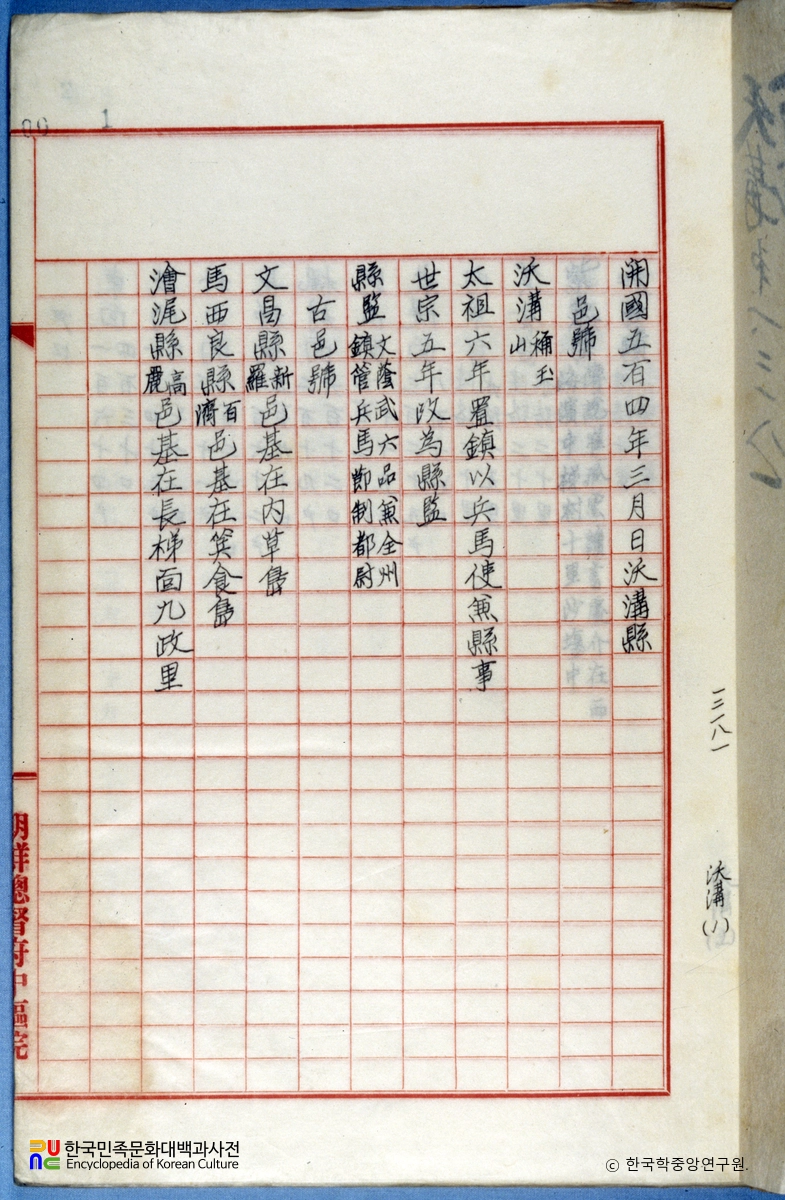 開國五百四年三月日沃溝縣
邑號
沃溝 稱玉山
太祖六年置鎮以兵馬使兼縣事
世宗五年改為縣監
縣監 文蔭武六品兼全州鎮管兵馬節制都尉
古邑號
文昌縣 新羅 邑基在內草島
馬西良縣 百濟 邑基在箕食島
澮尾縣 高麗 邑基在長梯面九政里
朝鮮總督府中樞院
一三一八一
沃溝(1)
1
한국민족문화대백과사전
Encyclopedia of Korean Culture
ⓒ 한국학중앙연구원.